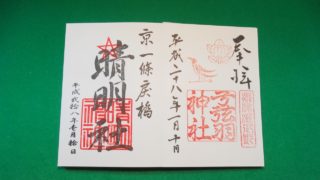 奉拝
弓弦羽
神社
平成二十八年一月十日
京一條戻橋
晴明社
平成貮拾八年壱月拾日